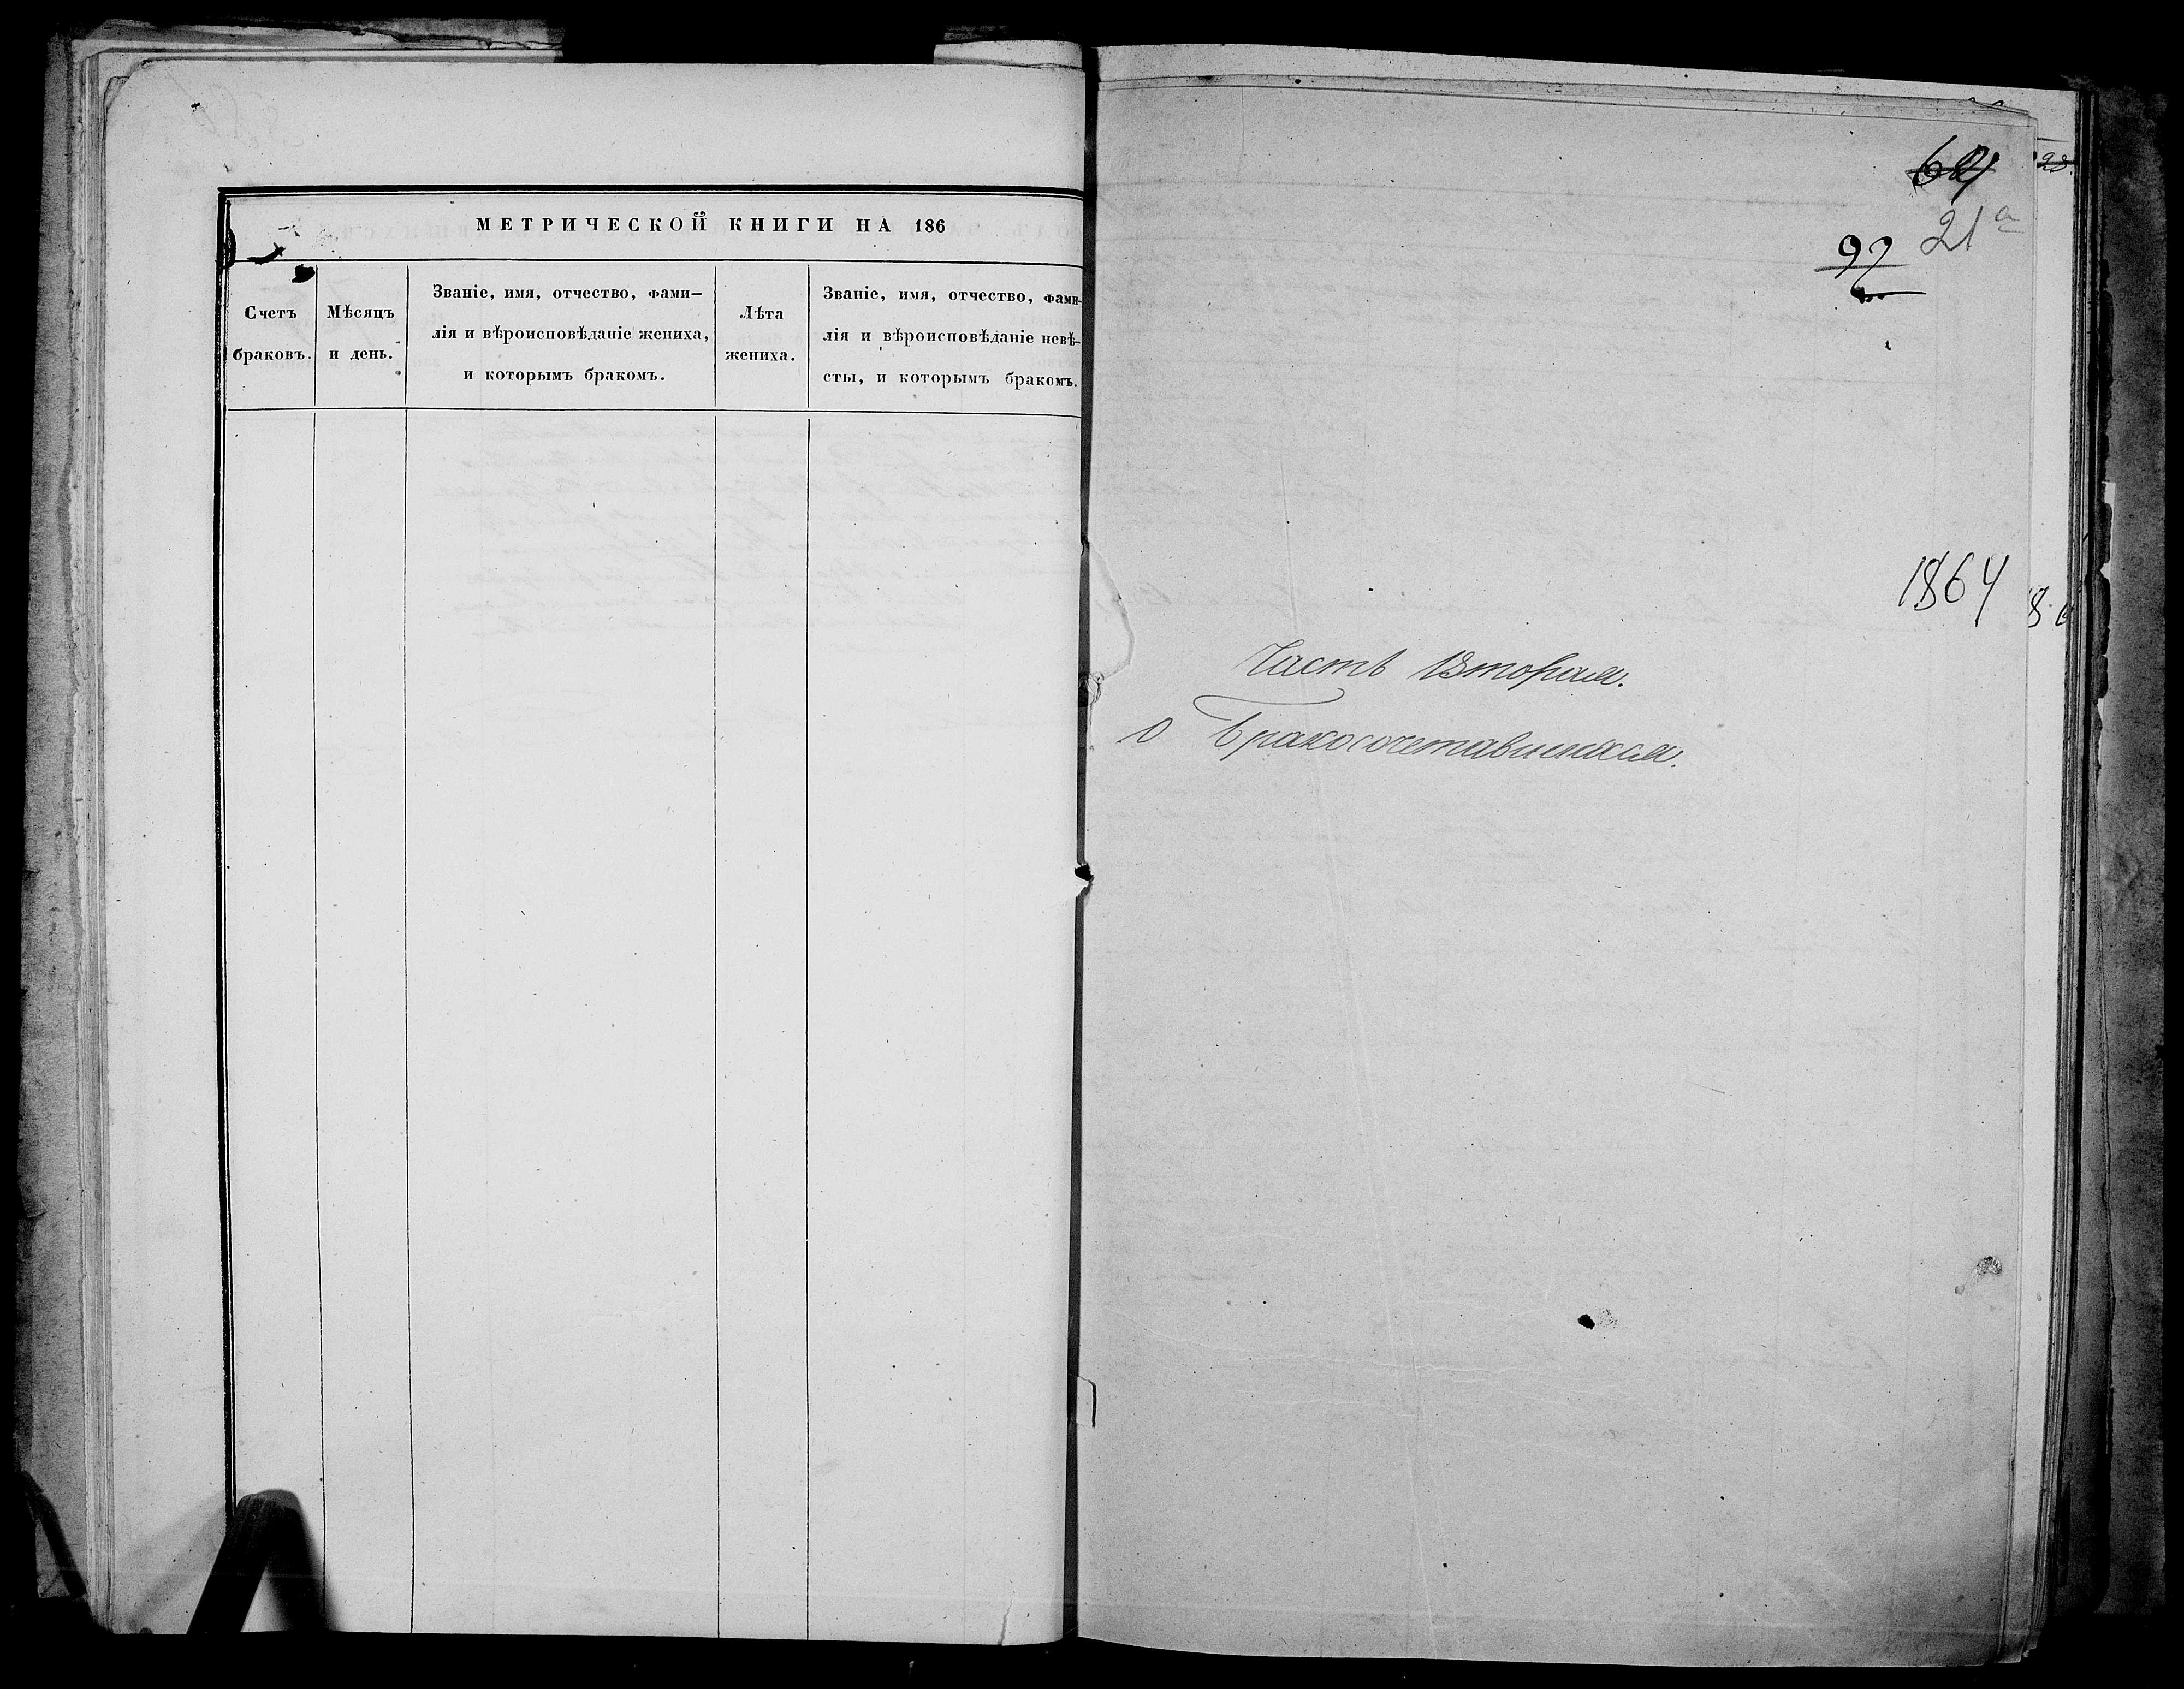 МЕТРИЧЕСКОЙ КНИГИ НА 186
Счетъ
браковъ.
Мѣсяцъ
и день.
Званіе, имя, отчество, фами–
лія и вѣроисповѣданіе жениха,
и которымъ бракомъ.
Лѣта
жениха.
Званіе, имя, отчество, фами-
лія и вѣроисповѣданіе невѣ-
сты, и которымъ бракомъ.
21а
97
1864
Часть Вторая.
О Бракосочетавшихся.